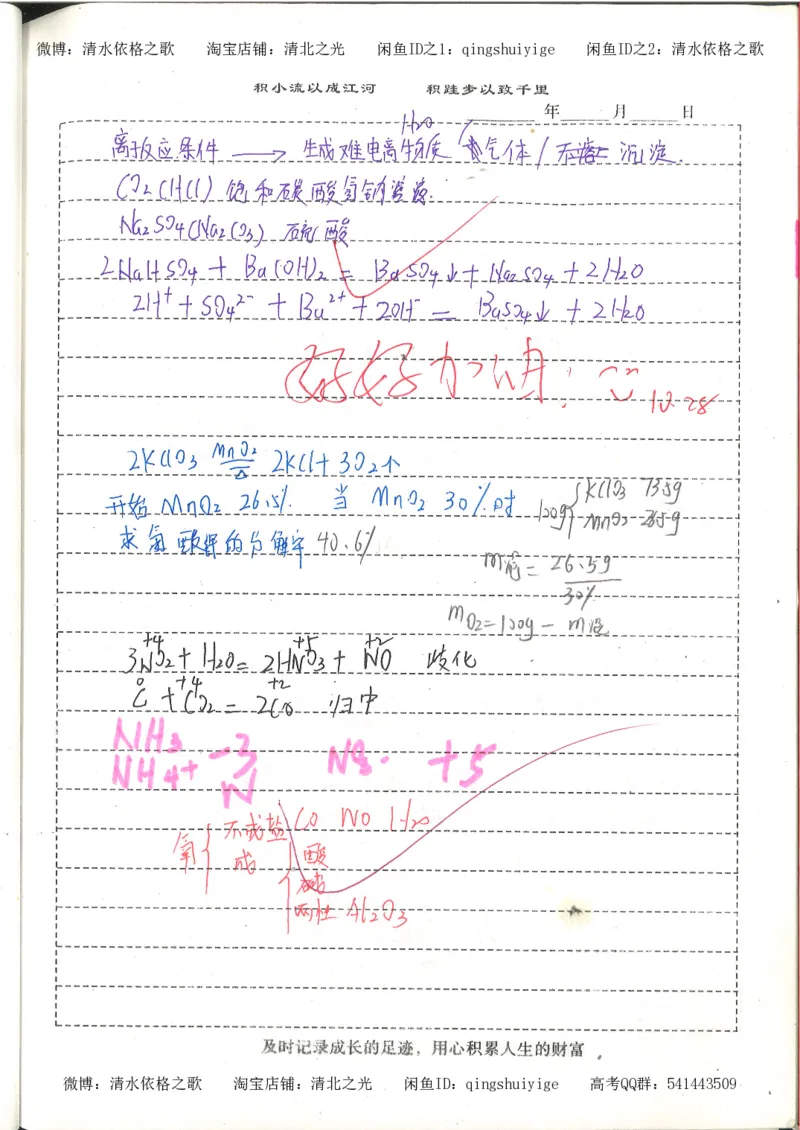 微博：清水依格之歌 淘宝店铺：清北之光 闲鱼ID之1：qingshuiyige 闲鱼ID之2：清水依格之歌
积小流以成江河 积跬步以致千里
年 月 日
H2O
离子反应条件 → 生成难电离物质 / 气体 / 不溶 沉淀.
CO2(HCl) 饱和碳酸氢钠溶液.
Na2SO4(Na2CO3) 硫酸
2NaHSO4 + Ba(OH)2 = BaSO4↓ + Na2SO4 + 2H2O
2H+ + SO42- + Ba2+ + 2OH- = BaSO4↓ + 2H2O
好好加油!
10.28
2KClO3 MnO2 = △ 2KCl + 3O2↑
开始 MnO2 26.5%. 当 MnO2 30%时
求氯酸钾的分解率 40.6%
100g { KClO3 73.5g
MnO2 26.5g
m混 = 26.5g
30%
mO2 = 100g - m混
+4 +5 +2
3NO2 + H2O = 2HNO3 + NO 歧化
0 +4 +2
C + CO2 = 2CO 归中
NH3
NH4+ -3
N
NO3- +5
氧 { 不成盐 CO NO H2O
成 { 酸
碱
两性 Al2O3
及时记录成长的足迹，用心积累人生的财富
微博：清水依格之歌 淘宝店铺：清北之光 闲鱼ID：qingshuiyige 高考QQ群：541443509